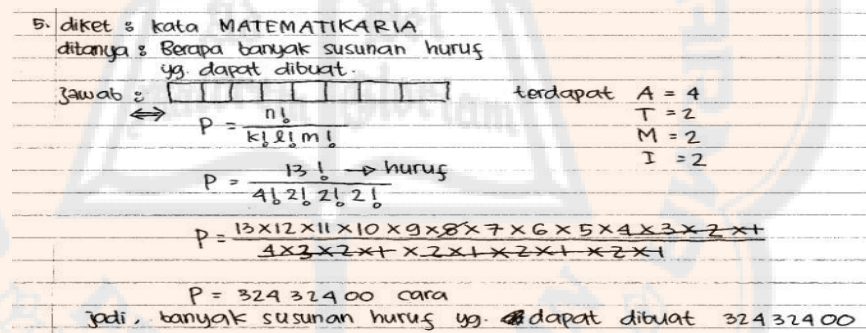 5. diket : kata MATEMATIKARIA
ditanya : Berapa banyak susunan huruf
yg. dapat dibuat.
Jawab :
terdapat A = 4
T = 2
M = 2
I = 2
⟺ P = n! / k! l! m!
P = 13! → huruf / 4! 2! 2! 2!
P = 13×12×11×10×9×8×7×6×5×4×3×2×1 / 4×3×2×1×2×1×2×1×2×1
P = 32432400 cara
jadi, banyak susunan huruf yg. dapat dibuat 32432400